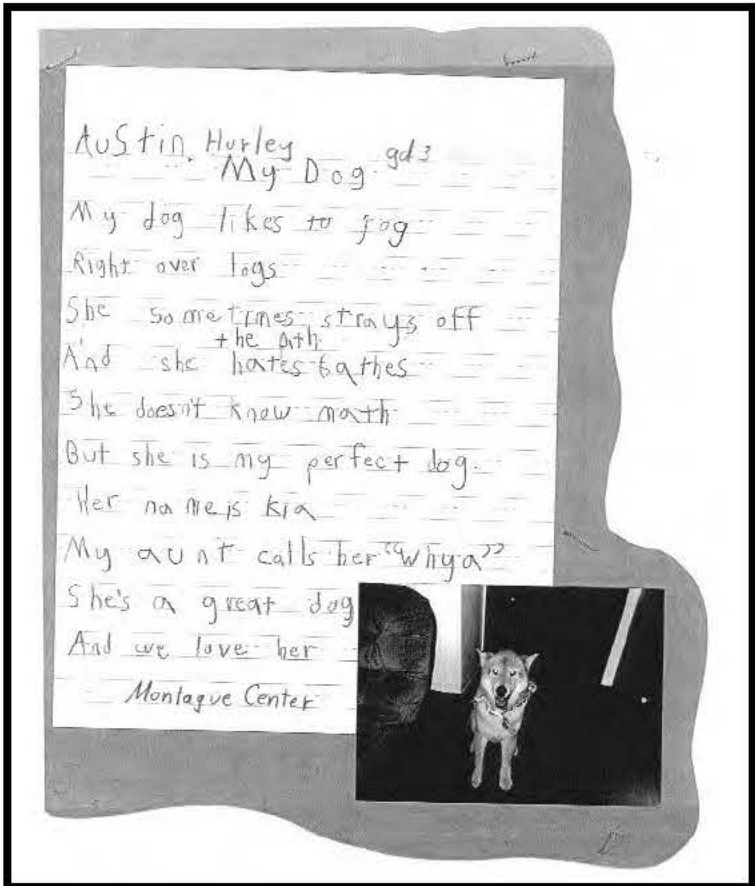 Austin Hurley gd3
My Dog
My dog likes to jog
Right over logs
She sometimes strays off
the path
And she hates bathes
She doesn't know math
But she is my perfect dog.
Her name is kia
My aunt calls her "whya"
She's a great dog
And we love her
Montague Center